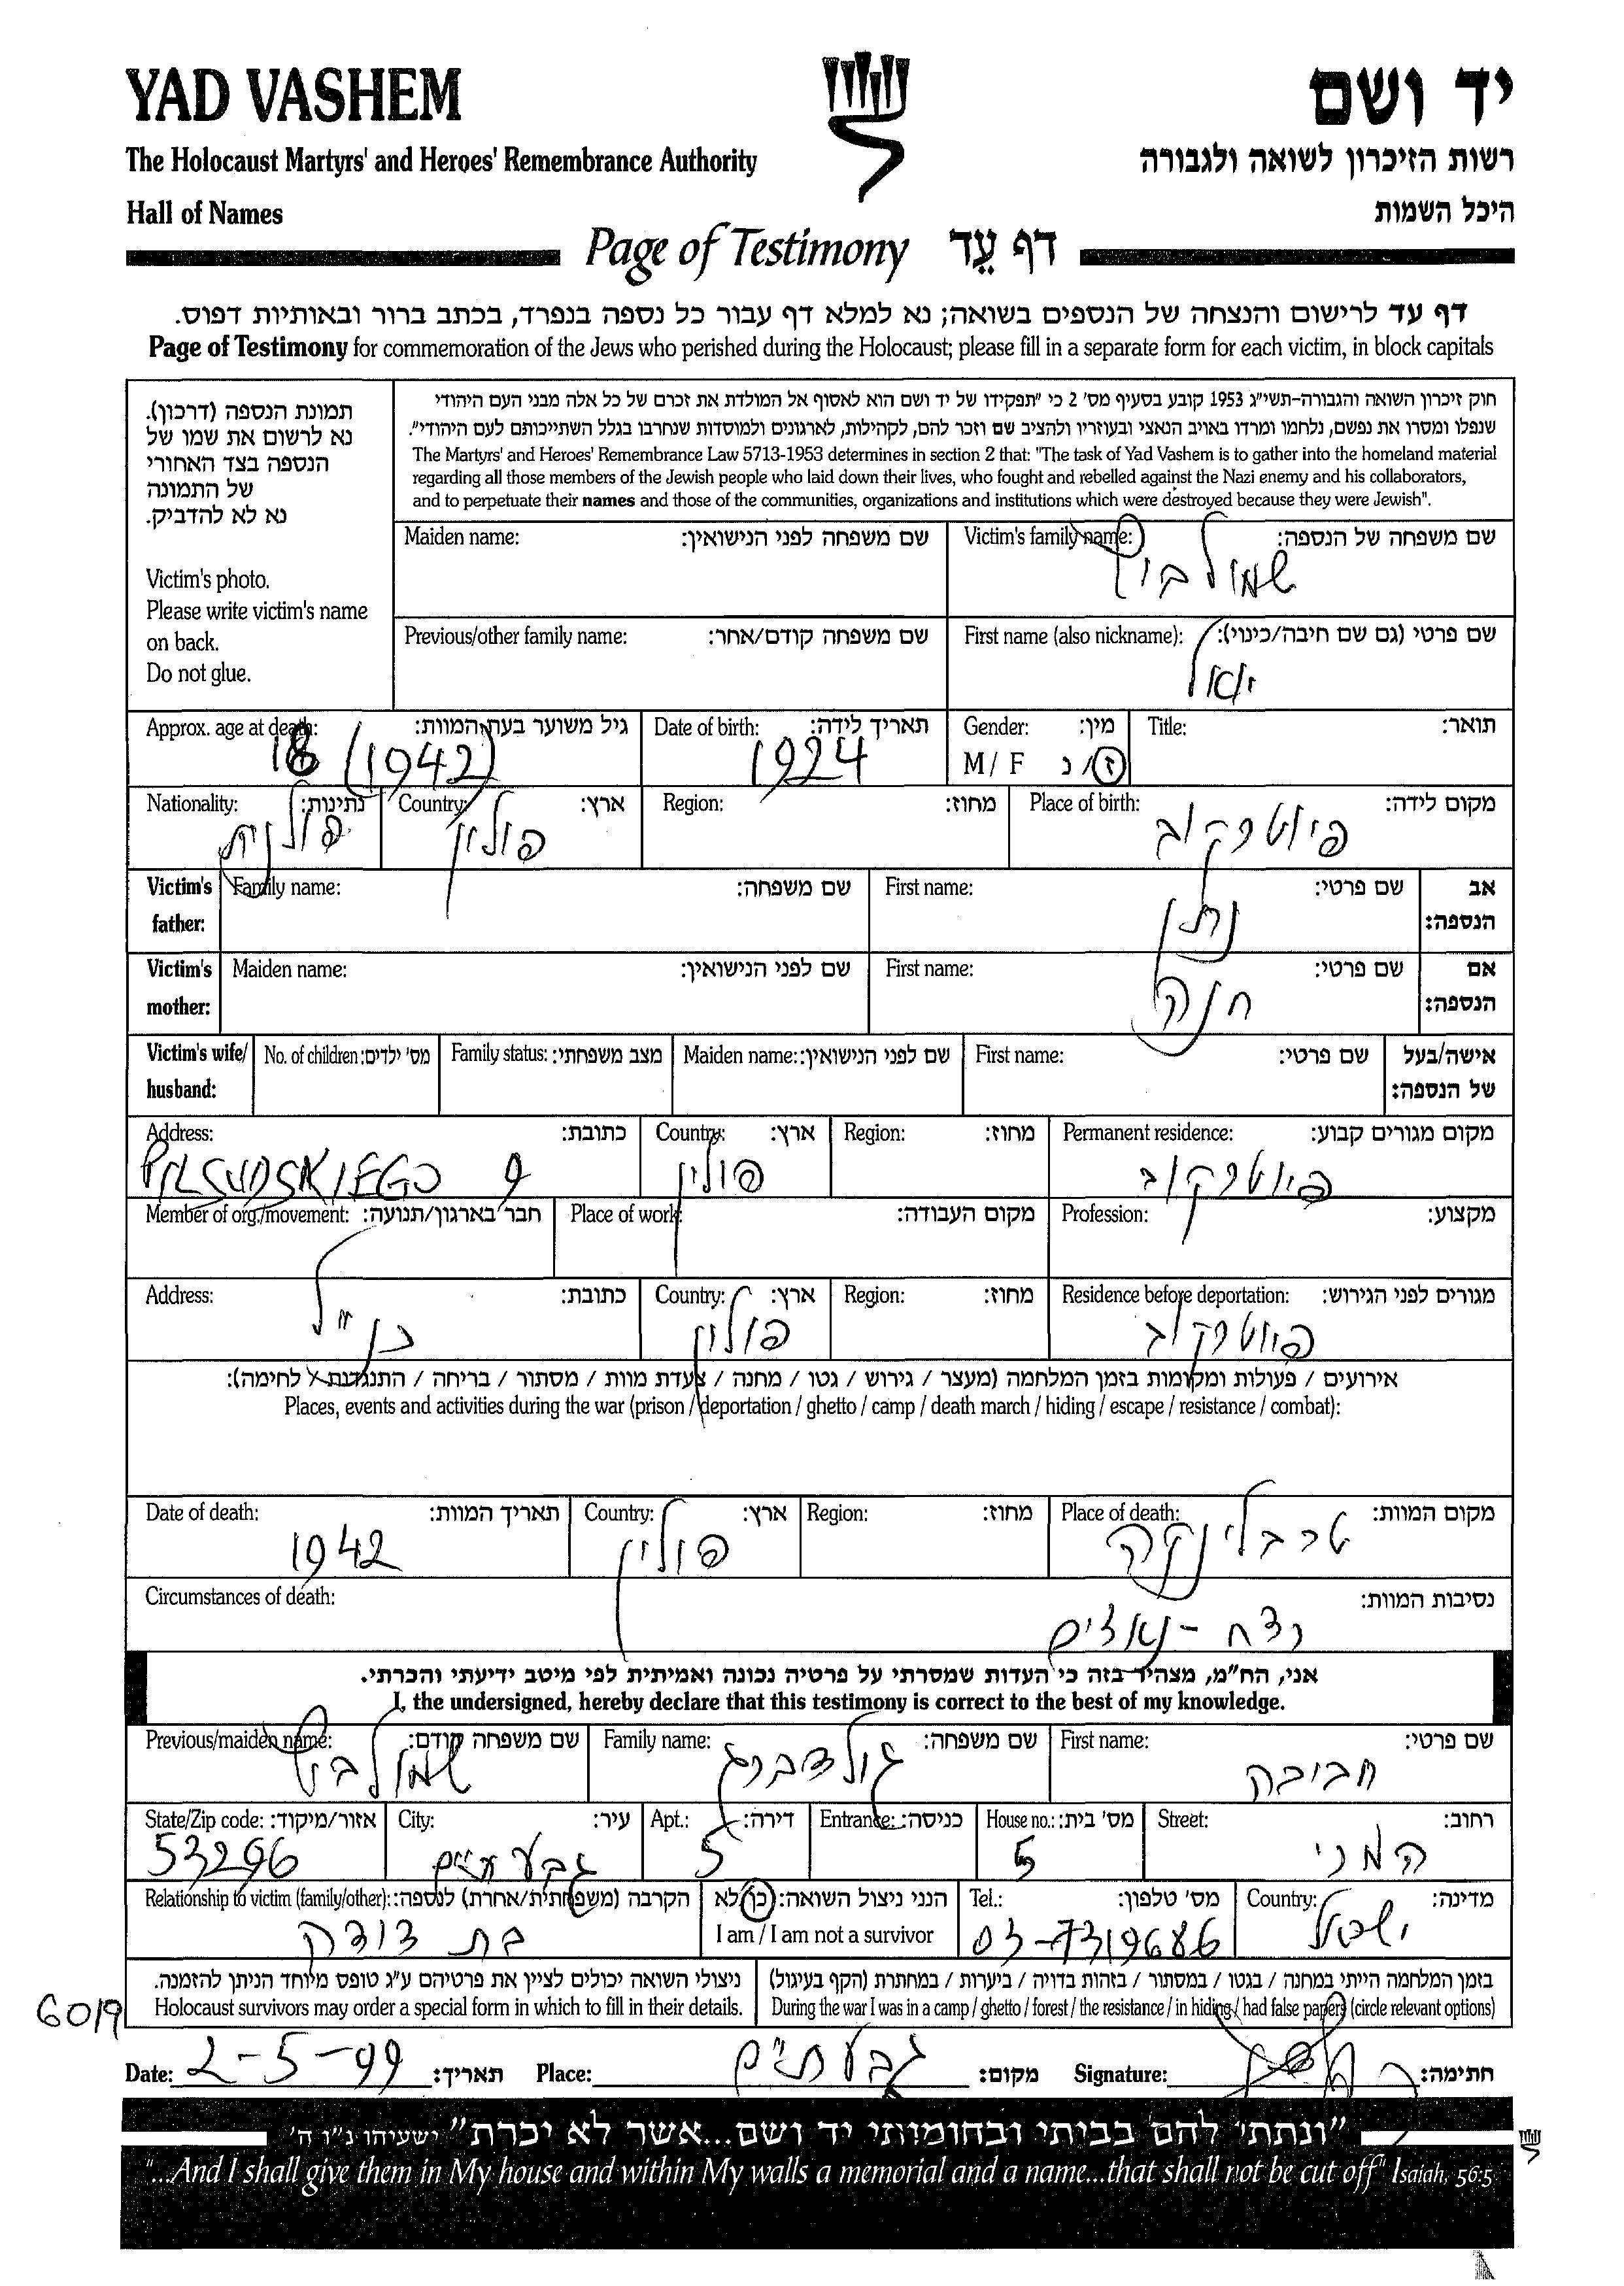 YAD VASHEM
יד ושם
The Holocaust Martyrs' and Heroes' Remembrance Authority
רשות הזיכרון לשואה ולגבורה
Hall of Names
היכל השמות
Page of Testimony דף עֵד
דף עד לרישום והנצחה של הנספים בשואה; נא למלא דף עבור כל נספה בנפרד, בכתב ברור ובאותיות דפוס.
Page of Testimony for commemoration of the Jews who perished during the Holocaust; please fill in a separate form for each victim, in block capitals
תמונת הנספה (דרכון).
נא לרשום את שמו של
הנספה בצד האחורי
של התמונה
נא לא להדביק.
Victim's photo.
Please write victim's name
on back.
Do not glue.
חוק זיכרון השואה והגבורה-תשי"ג 1953 קובע בסעיף מס' 2 כי "תפקידו של יד ושם הוא לאסוף אל המולדת את זכרם של כל אלה מבני העם היהודי
שנפלו ומסרו את נפשם, נלחמו ומרדו באויב הנאצי ובעוזריו ולהציב שם וזכר להם, לקהילות, לארגונים ולמוסדות שנחרבו בגלל השתייכותם לעם היהודי".
The Martyrs' and Heroes' Remembrance Law 5713-1953 determines in section 2 that: "The task of Yad Vashem is to gather into the homeland material
regarding all those members of the Jewish people who laid down their lives, who fought and rebelled against the Nazi enemy and his collaborators,
and to perpetuate their names and those of the communities, organizations and institutions which were destroyed because they were Jewish".
Maiden name: שם משפחה לפני הנישואין:
Victim's family name: שם משפחה של הנספה:
שמולביץ
Previous/other family name: שם משפחה קודם/אחר:
First name (also nickname): שם פרטי (גם שם חיבה/כינוי):
יואל
Approx. age at death: גיל משוער בעת המוות:
18 (1942)
Date of birth: תאריך לידה:
1924
Gender: מין:
M / F ז/נ
Title: תואר:
Nationality: נתינות:
פולנית
Country: ארץ:
פולין
Region: מחוז:
Place of birth: מקום לידה:
פיוטרקוב
Victim's father: Family name: שם משפחה:
First name: שם פרטי:
אב הנספה:
נתן
Victim's mother: Maiden name: שם לפני הנישואין:
First name: שם פרטי:
אם הנספה:
חנה
Victim's wife/ husband: No. of children: מס' ילדים:
Family status: מצב משפחתי:
Maiden name: שם לפני הנישואין:
First name: שם פרטי:
אישה/בעל של הנספה:
Address: כתובת:
PILSUDSKIEGO 9
Country: ארץ:
פולין
Region: מחוז:
Permanent residence: מקום מגורים קבוע:
פיוטרקוב
Member of org./movement: חבר בארגון/תנועה:
Place of work: מקום העבודה:
Profession: מקצוע:
Address: כתובת:
כנ"ל
Country: ארץ:
פולין
Region: מחוז:
Residence before deportation: מגורים לפני הגירוש:
פיוטרקוב
אירועים / פעולות ומקומות בזמן המלחמה (מעצר / גירוש / גטו / מחנה / צעדת מוות / מסתור / בריחה / התנגדות / לחימה):
Places, events and activities during the war (prison / deportation / ghetto / camp / death march / hiding / escape / resistance / combat):
Date of death: תאריך המוות:
1942
Country: ארץ:
פולין
Region: מחוז:
Place of death: מקום המוות:
טרבלינקה
Circumstances of death: נסיבות המוות:
נרצח - נאצים
אני, הח"מ, מצהיר בזה כי העדות שמסרתי על פרטיה נכונה ואמיתית לפי מיטב ידיעתי והכרתי.
I, the undersigned, hereby declare that this testimony is correct to the best of my knowledge.
Previous/maiden name: שם משפחה קודם:
שמולביץ
Family name: שם משפחה:
גולדברג
First name: שם פרטי:
חביבה
State/Zip code: אזור/מיקוד:
53296
City: עיר:
גבעתיים
Apt.: דירה:
5
Entrance: כניסה:
House no.: מס' בית:
5
Street: רחוב:
Relationship to victim (family/other): הקרבה (משפחתית/אחרת) לנספה:
בת דודה
הנני ניצול השואה: כן/לא
I am / I am not a survivor
Tel.: מס' טלפון:
03-7319686
Country: מדינה:
ישראל
ניצולי השואה יכולים לציין את פרטיהם ע"ג טופס מיוחד הניתן להזמנה.
Holocaust survivors may order a special form in which to fill in their details.
בזמן המלחמה הייתי במחנה / בגטו / במסתור / בזהות בדויה / ביערות / במחתרת (הקף בעיגול)
During the war I was in a camp / ghetto / forest / the resistance / in hiding / had false papers (circle relevant options)
6019
Date: 2-5-99 תאריך:
Place: גבעתיים מקום:
Signature: חתימה:
"ונתתי להם בביתי ובחומותי יד ושם...אשר לא יכרת" ישעיהו נ"ו ה'
"...And I shall give them in My house and within My walls a memorial and a name...that shall not be cut off" Isaiah, 56:5